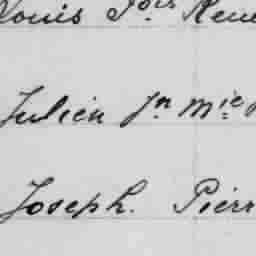 Louis Jois René
Julien Jn Mie
Joseph. Pierr